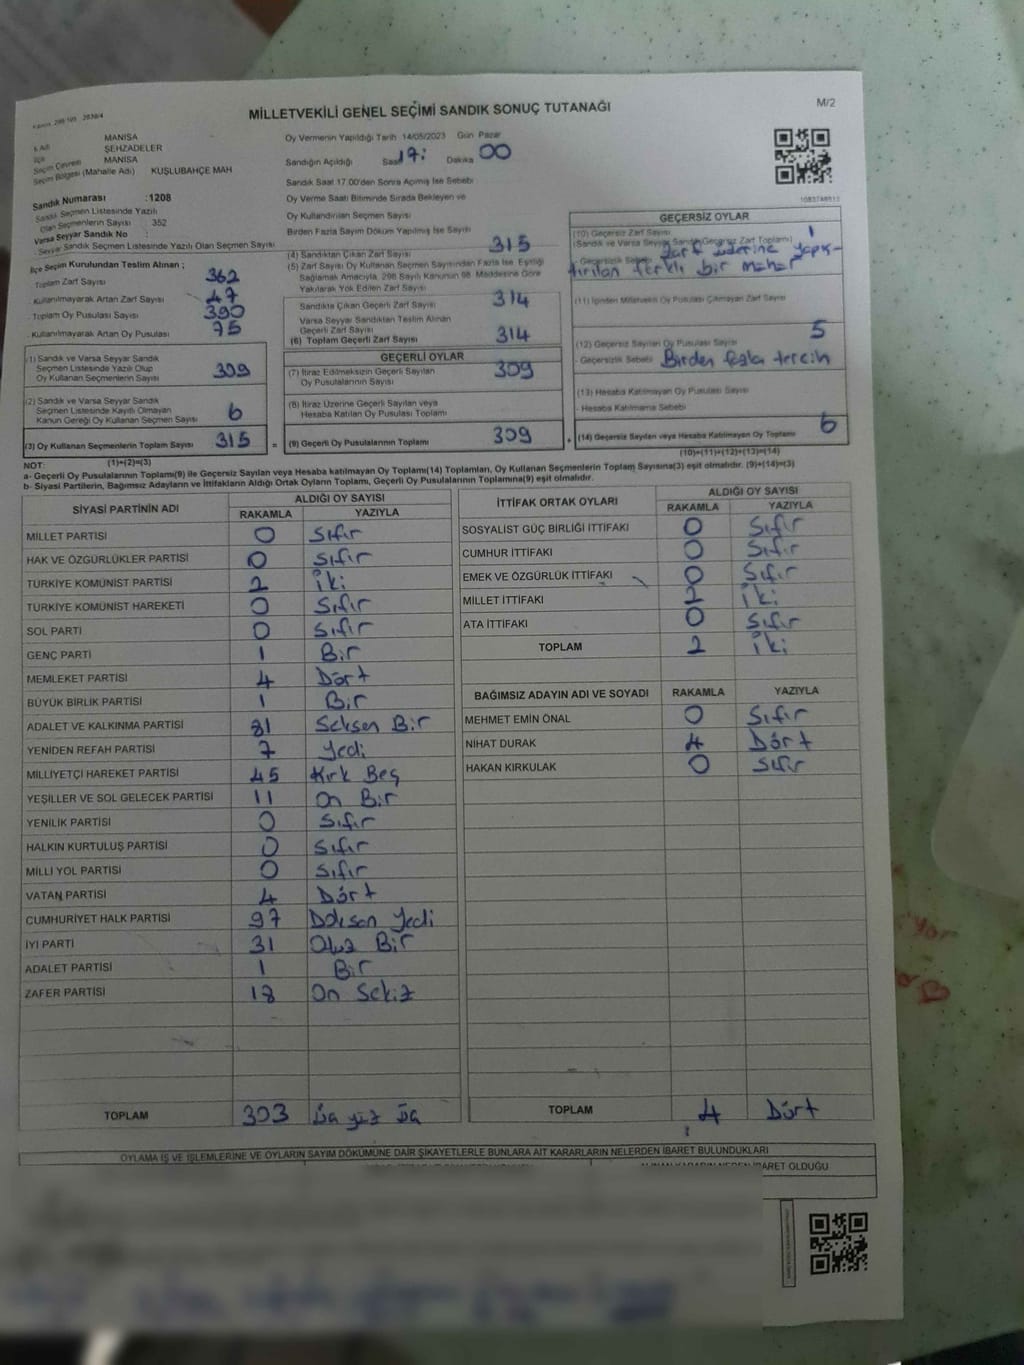 MİLLETVEKİLİ GENEL SEÇİMİ SANDIK SONUÇ TUTANAĞI
M/2
MANİSA
İlçe ŞEHZADELER
Seçim Çevresi MANİSA
Seçim Bölgesi (Mahalle Adı) KUŞLUBAHÇE MAH
Sandık Numarası :1208
Sandık Seçmen Listesinde Yazılı
Olan Seçmenlerin Sayısı : 352
Varsa Seyyar Sandık No :
Seyyar Sandık Seçmen Listesinde Yazılı Olan Seçmen Sayısı
Oy Vermenin Yapıldığı Tarih 14/05/2023 Gün Pazar
Sandığın Açıldığı Saat 17: Dakika 00
Sandık Saat 17.00'den Sonra Açılmış İse Sebebi
Oy Verme Saati Bitiminde Sırada Bekleyen ve
Oy Kullandırılan Seçmen Sayısı
Birden Fazla Sayım Döküm Yapılmış İse Sayısı
İlçe Seçim Kurulundan Teslim Alınan ;
Toplam Zarf Sayısı 362
Kullanılmayarak Artan Zarf Sayısı 47
Toplam Oy Pusulası Sayısı 390
Kullanılmayarak Artan Oy Pusulası 75
(1) Sandık ve Varsa Seyyar Sandık
Seçmen Listesinde Yazılı Olup
Oy Kullanan Seçmenlerin Sayısı 309
(2) Sandık ve Varsa Seyyar Sandık
Seçmen Listesinde Kayıtlı Olmayan
Kanun Gereği Oy Kullanan Seçmen Sayısı 6
(3) Oy Kullanan Seçmenlerin Toplam Sayısı 315 =
(4) Sandıktan Çıkan Zarf Sayısı 315
(5) Zarf Sayısı Oy Kullanan Seçmen Sayısından Fazla İse, Eşitliği
Sağlamak Amacıyla, 298 Sayılı Kanunun 98. Maddesine Göre
Yakılarak Yok Edilen Zarf Sayısı
Sandıkta Çıkan Geçerli Zarf Sayısı 314
Varsa Seyyar Sandıktan Teslim Alınan
Geçerli Zarf Sayısı
(6) Toplam Geçerli Zarf Sayısı 314
GEÇERLİ OYLAR
(7) İtiraz Edilmeksizin Geçerli Sayılan
Oy Pusulalarının Sayısı 309
(8) İtiraz Üzerine Geçerli Sayılan veya
Hesaba Katılan Oy Pusulası Toplamı
(9) Geçerli Oy Pusulalarının Toplamı 309 +
GEÇERSİZ OYLAR
(10) Geçersiz Zarf Sayısı 1
(Sandık ve Varsa Seyyar Sandık Geçersiz Zarf Toplamı)
- Geçersizlik Sebebi Zarf üzerine yapış-
tırılan farklı bir mühür
(11) İçinden Milletvekili Oy Pusulası Çıkmayan Zarf Sayısı
(12) Geçersiz Sayılan Oy Pusulası Sayısı 5
- Geçersizlik Sebebi Birden fazla tercih
(13) Hesaba Katılmayan Oy Pusulası Sayısı
- Hesaba Katılmama Sebebi
(14) Geçersiz Sayılan veya Hesaba Katılmayan Oy Toplamı 6
NOT: (1)+(2)=(3)
(10)+(11)+(12)+(13)=(14)
a- Geçerli Oy Pusulaları Toplamı(9) ile Geçersiz Sayılan veya Hesaba katılmayan Oy Toplamı(14) Toplamları, Oy Kullanan Seçmenlerin Toplam Sayısına(3) eşit olmalıdır. (9)+(14)=(3)
b- Siyasi Partilerin, Bağımsız Adayların ve İttifakların Aldığı Ortak Oyların Toplamı, Geçerli Oy Pusulalarının Toplamına(9) eşit olmalıdır.
SİYASİ PARTİNİN ADI ALDIĞI OY SAYISI
RAKAMLA YAZIYLA
MİLLET PARTİSİ 0 Sıfır
HAK VE ÖZGÜRLÜKLER PARTİSİ 0 Sıfır
TÜRKİYE KOMÜNİST PARTİSİ 2 İki
TÜRKİYE KOMÜNİST HAREKETİ 0 Sıfır
SOL PARTİ 0 Sıfır
GENÇ PARTİ 1 Bir
MEMLEKET PARTİSİ 4 Dört
BÜYÜK BİRLİK PARTİSİ 1 Bir
ADALET VE KALKINMA PARTİSİ 81 Seksen Bir
YENİDEN REFAH PARTİSİ 7 Yedi
MİLLİYETÇİ HAREKET PARTİSİ 45 Kırk Beş
YEŞİLLER VE SOL GELECEK PARTİSİ 11 On Bir
YENİLİK PARTİSİ 0 Sıfır
HALKIN KURTULUŞ PARTİSİ 0 Sıfır
MİLLİ YOL PARTİSİ 0 Sıfır
VATAN PARTİSİ 4 Dört
CUMHURİYET HALK PARTİSİ 97 Doksan Yedi
İYİ PARTİ 31 Otuz Bir
ADALET PARTİSİ 1 Bir
ZAFER PARTİSİ 18 On Sekiz
TOPLAM 303 Üç yüz Üç
İTTİFAK ORTAK OYLARI ALDIĞI OY SAYISI
RAKAMLA YAZIYLA
SOSYALİST GÜÇ BİRLİĞİ İTTİFAKI 0 Sıfır
CUMHUR İTTİFAKI 0 Sıfır
EMEK VE ÖZGÜRLÜK İTTİFAKI 0 Sıfır
MİLLET İTTİFAKI 2 İki
ATA İTTİFAKI 0 Sıfır
TOPLAM 2 İki
BAĞIMSIZ ADAYIN ADI VE SOYADI RAKAMLA YAZIYLA
MEHMET EMİN ÖNAL 0 Sıfır
NİHAT DURAK 4 Dört
HAKAN KIRKULAK 0 Sıfır
TOPLAM 4 Dört
OYLAMA İŞ VE İŞLEMLERİNE VE OYLARIN SAYIM DÖKÜMÜNE DAİR ŞİKAYETLERLE BUNLARA AİT KARARLARIN NELERDEN İBARET BULUNDUKLARI